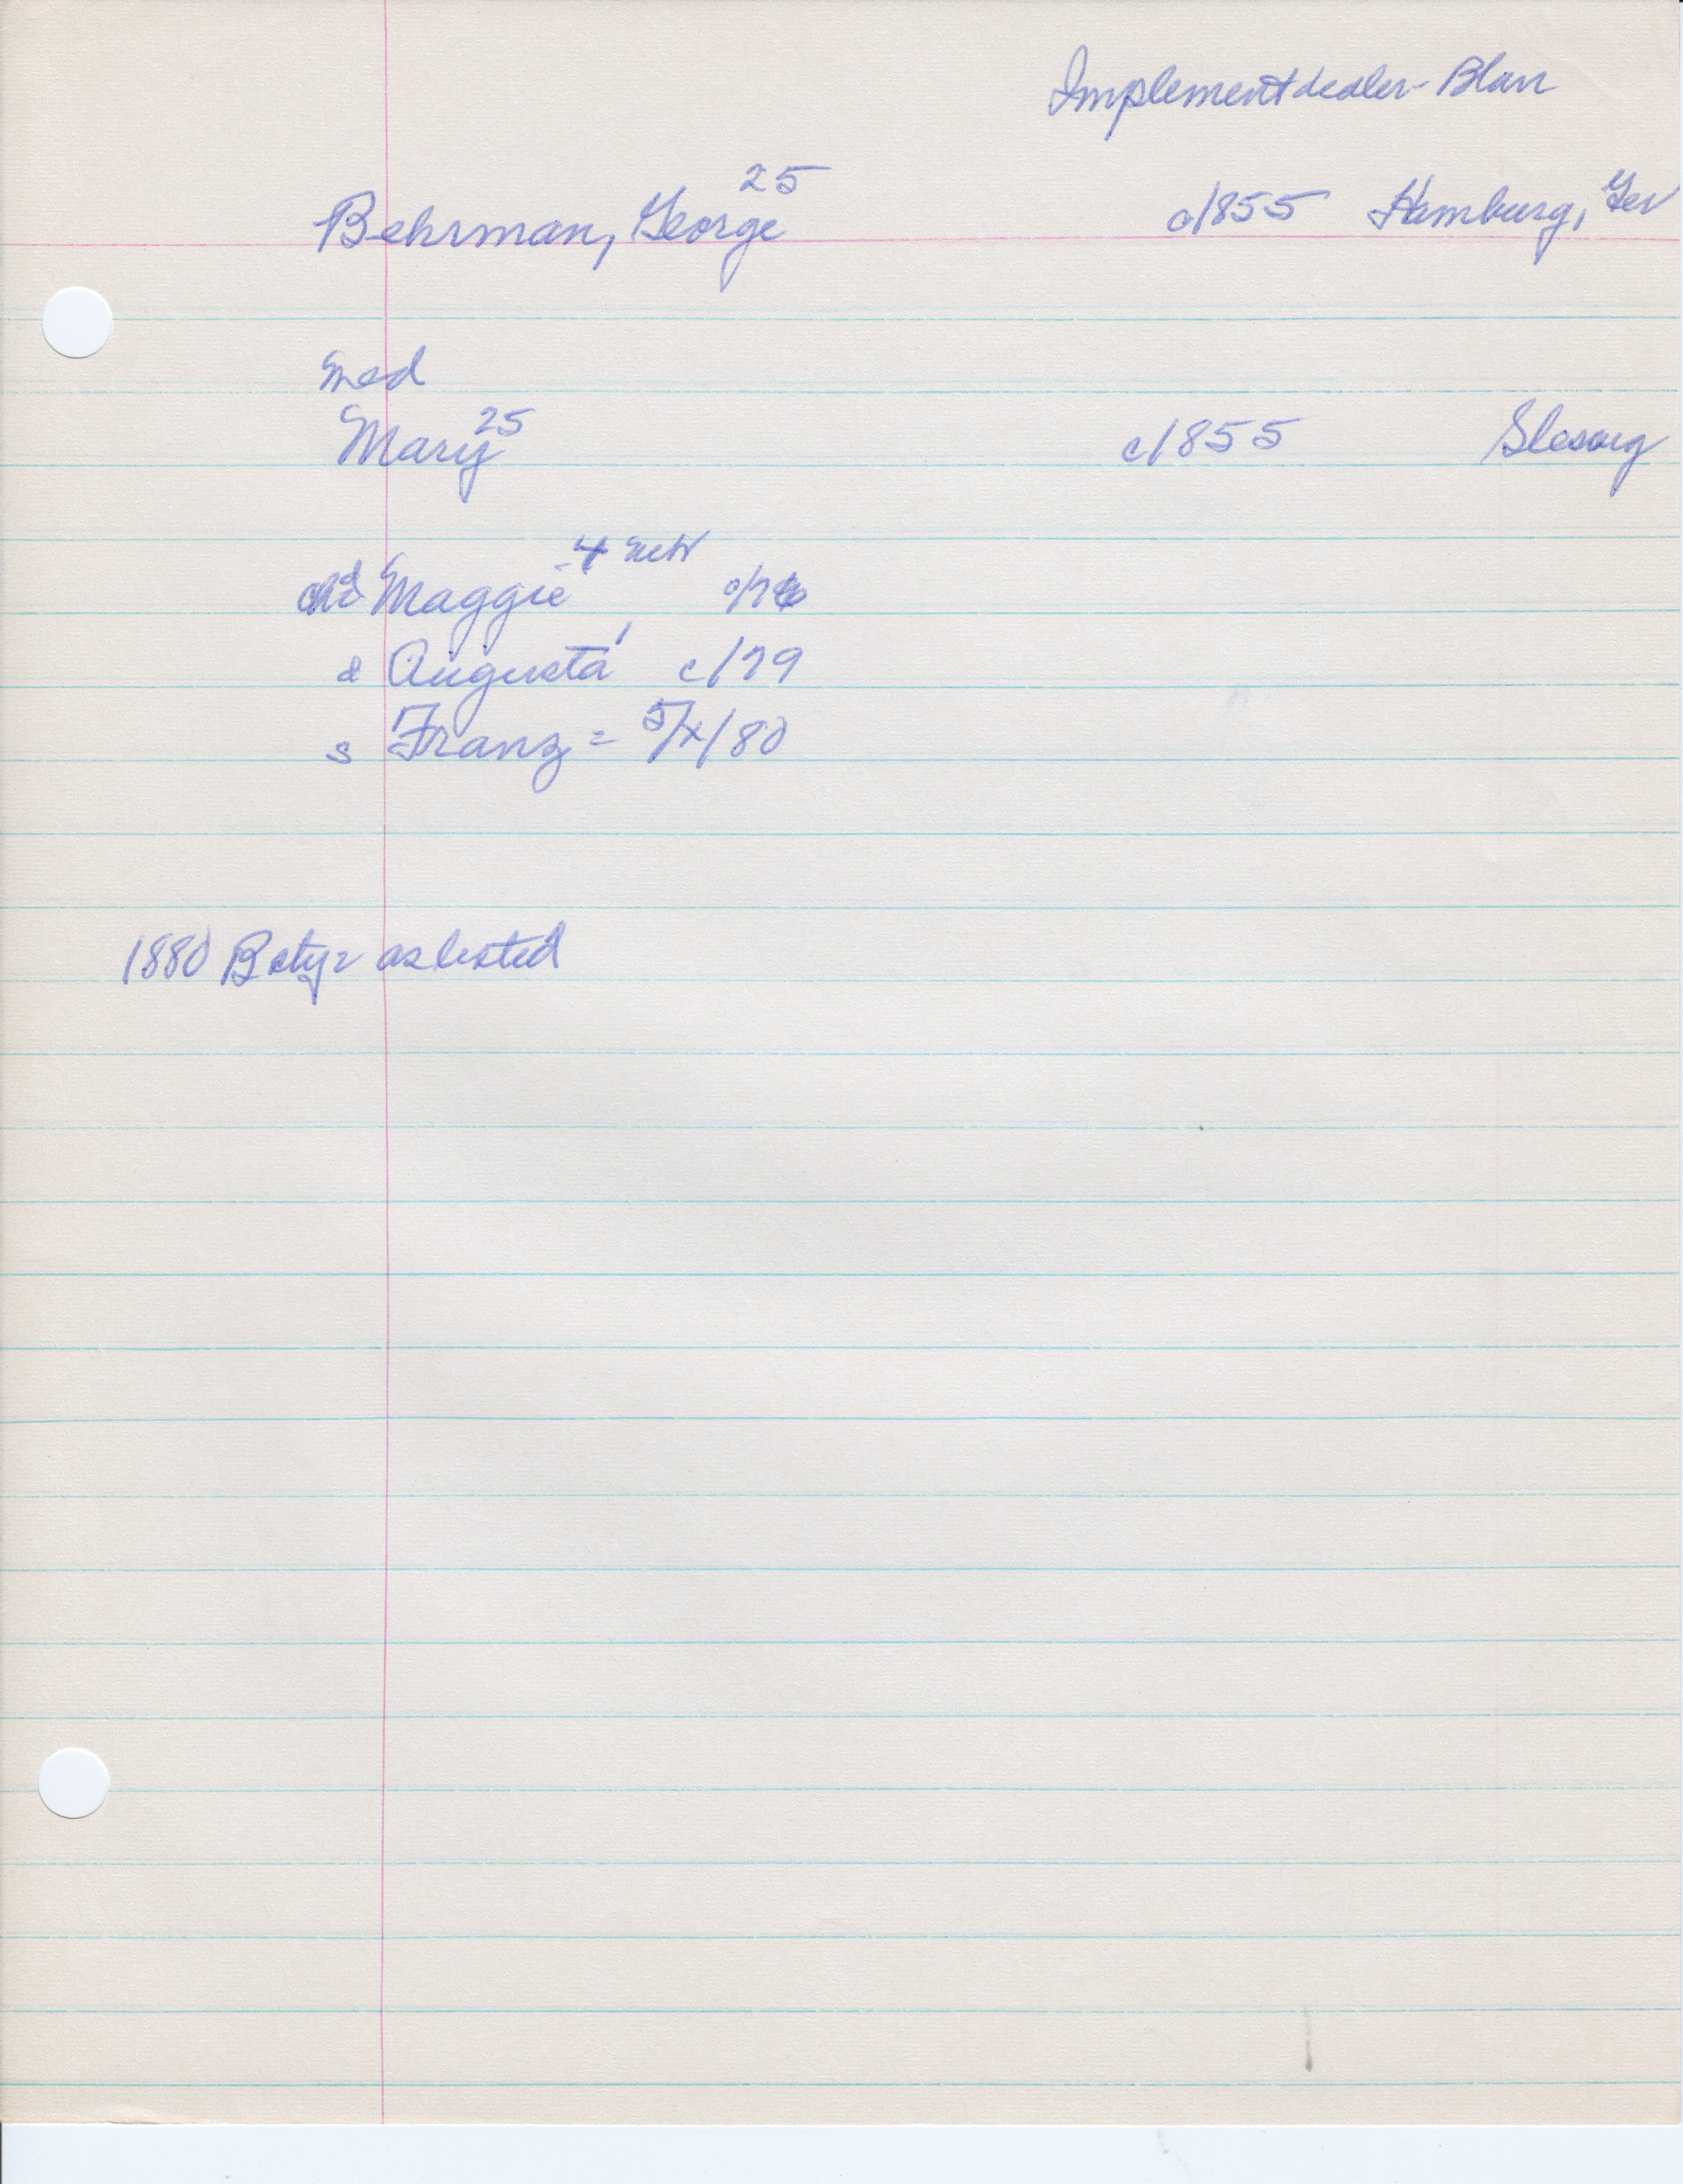 Implement dealer - Blair
Behrman, George 25 c/1855 Hamburg, Ger
med
Mary 25 c/1855 Slesvig
chd Maggie 4 Nebr c/76
d Augusta 1 c/79
s Franz = 5/x/80
1880 Bcty = as listed